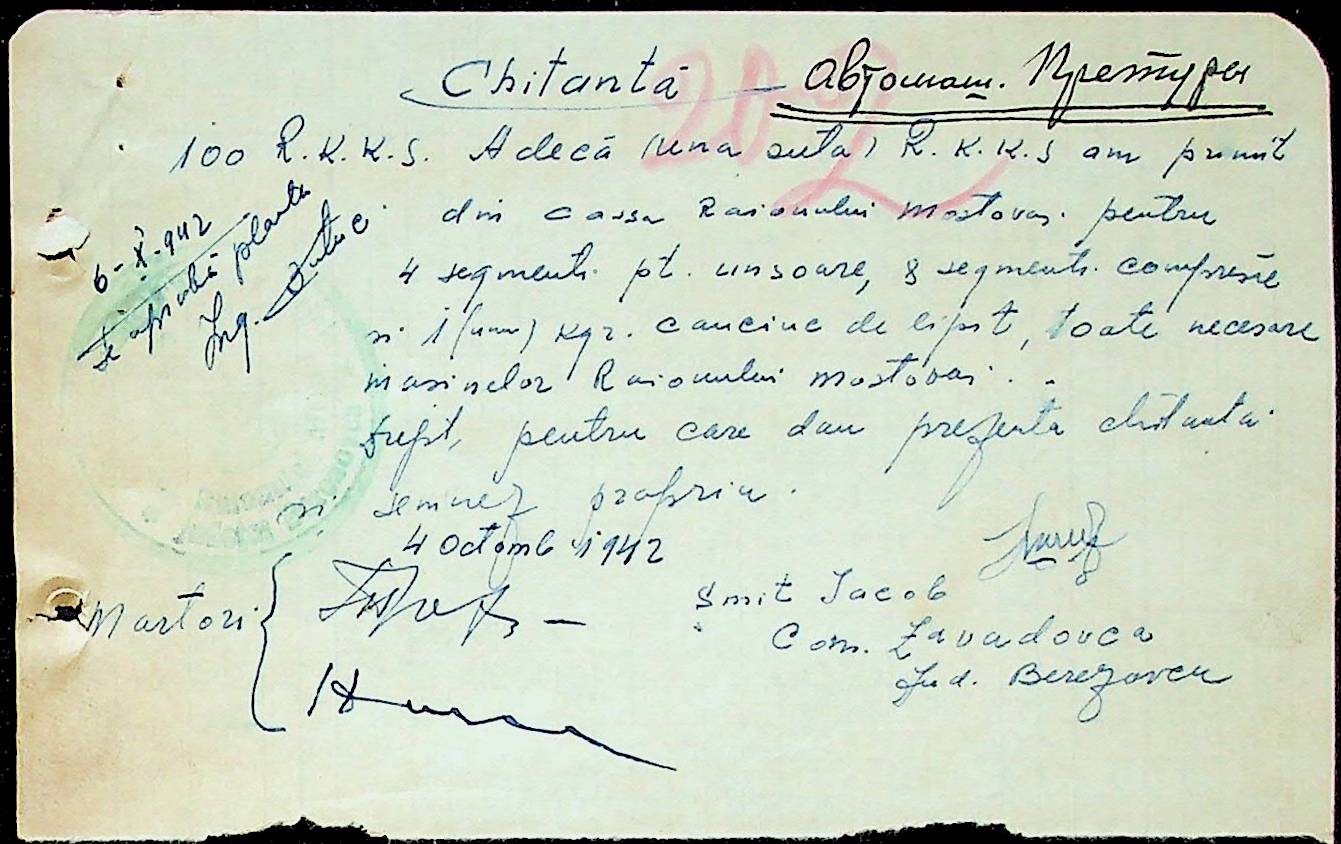 Chitantă — Автомаш. Претуры
202
100 R.K.K.S. Adecă (una suta) R.K.K.S am primit
din cassa Raionului Mostovoi pentru
4 segmenti pt. unsoare, 8 segmenti compresie
si 1 (unu) kgr. cauciuc de lipit, toate necesare
masinelor Raionului Mostovoi.
Drept, pentru care dau prezenta chitanta
si semnez propriu.
4 Octomb 1942
6-X-942
Se aprobă plata
Ing.
Martori
Smit Jacob
Com. Zavadovca
Jud. Berezovca